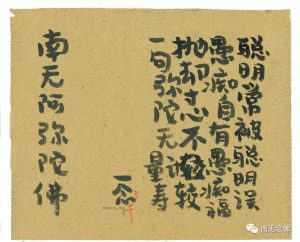 聪明常被聪明误
愚痴自有愚痴福
抛却寸心不较
一句弥陀无量寿
一念
南无阿弥陀佛
南无念佛